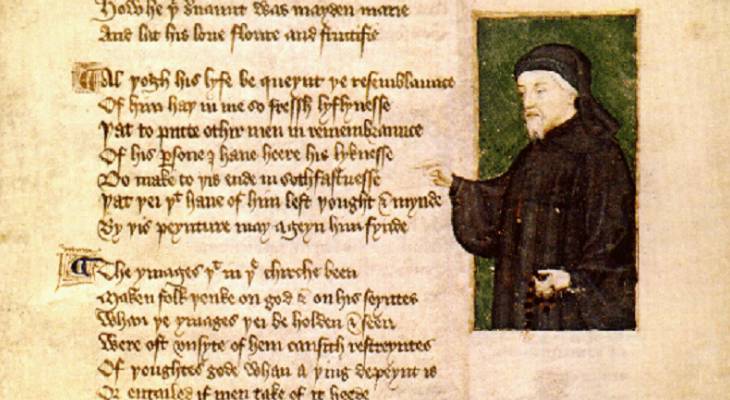 How he þͥ ẜuaunt was mayden marie
And lat his loue floure and fructifie
Al þogh his lyfe be queynt þe resemblaunce
Of him haþ in me so fressh lyflynesse
Þat to putte othir men in remembraunce
Of his ꝑsone I haue heere his lyknesse
Do make to þis ende in sothfastnesse
Þat þei þᵗ haue of him left þought & mynde
By þis peynture may ageyn him fynde
The ymages þᵗ in þͤ chirche been
Maken folk þenke on god & on his seyntes
Whan þe ymages þei be holden & seen
Were oft vnsyte of hem causith restreyntes
Of þoughtes gode whan a þing depeynt is
Or entailed if men take of it heede